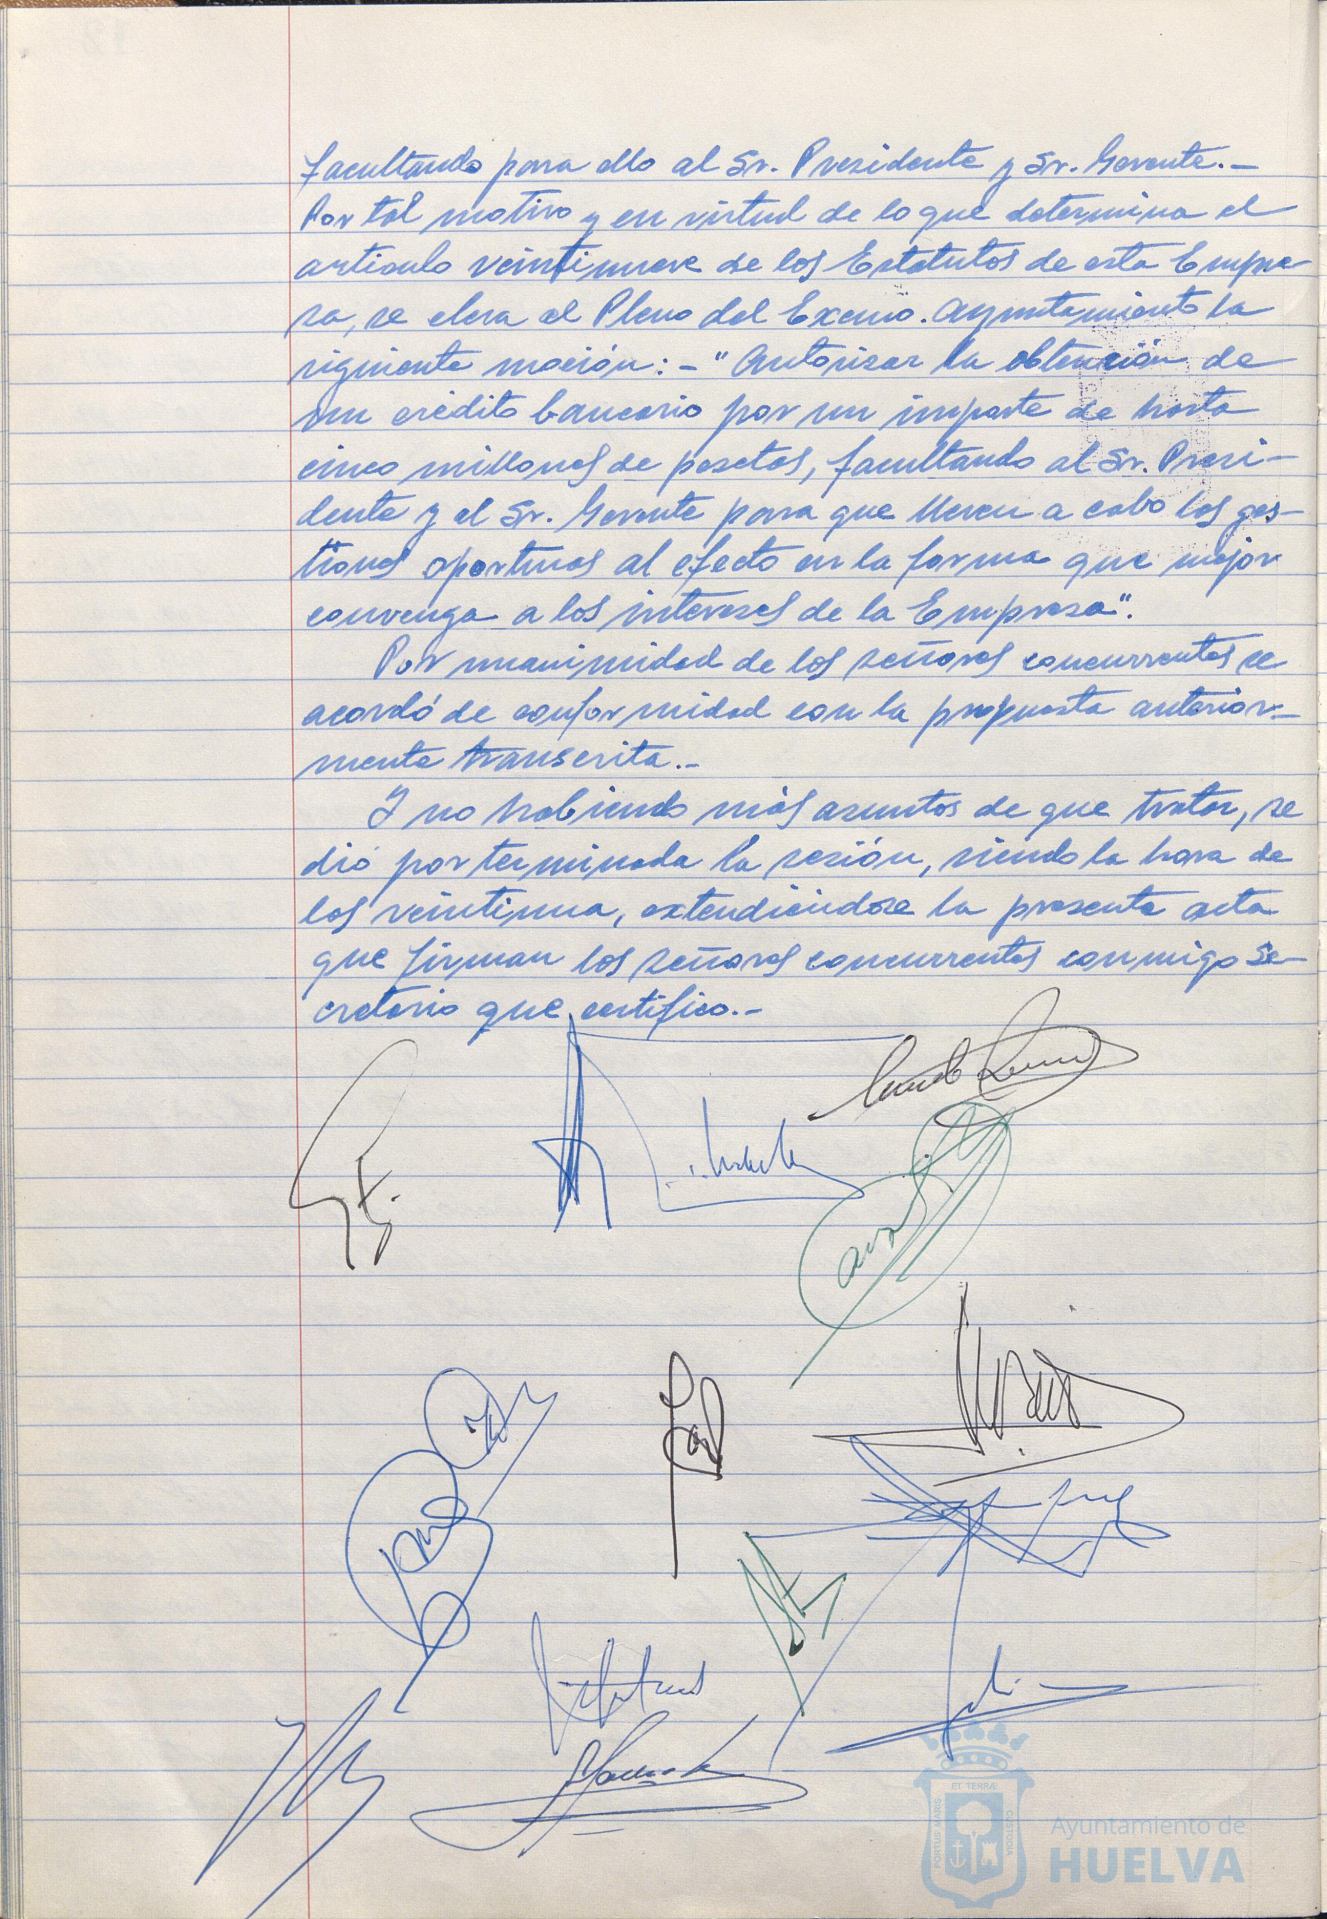 facultando para ello al Sr. Presidente y Sr. Gerente.-
Por tal motivo y en virtud de lo que determina el
articulo veintinueve de los Estatutos de esta Empre-
sa, se eleva al Pleno del Excmo. Ayuntamiento la
siguiente moción: - "Autorizar la obtención de
un crédito bancario por un importe de hasta
cinco millones de pesetas, facultando al Sr. Presi-
dente y el Sr. Gerente para que lleven a cabo las ges-
tiones oportunas al efecto en la forma que mejor
convenga a los intereses de la Empresa".
Por unanimidad de los señores concurrentes se
acordó de conformidad con la propuesta anterior-
mente transcrita.-
Y no habiendo más asuntos de que tratar, se
dió por terminada la sesión, siendo la hora de
las veintiuna, extendiéndose la presente acta
que firman los señores concurrentes conmigo Se-
cretario que certifico.-
PORTUS MARIS
ET TERRÆ
CUSTODIA
Ayuntamiento de
HUELVA